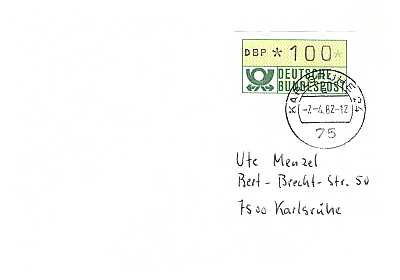 DBP * 100 *
DEUTSCHE
BUNDESPOST
KARLSRUHE 24
-2.-4.82-12
75
Ute Menzel
Bert-Brecht-Str. 50
7500 Karlsruhe